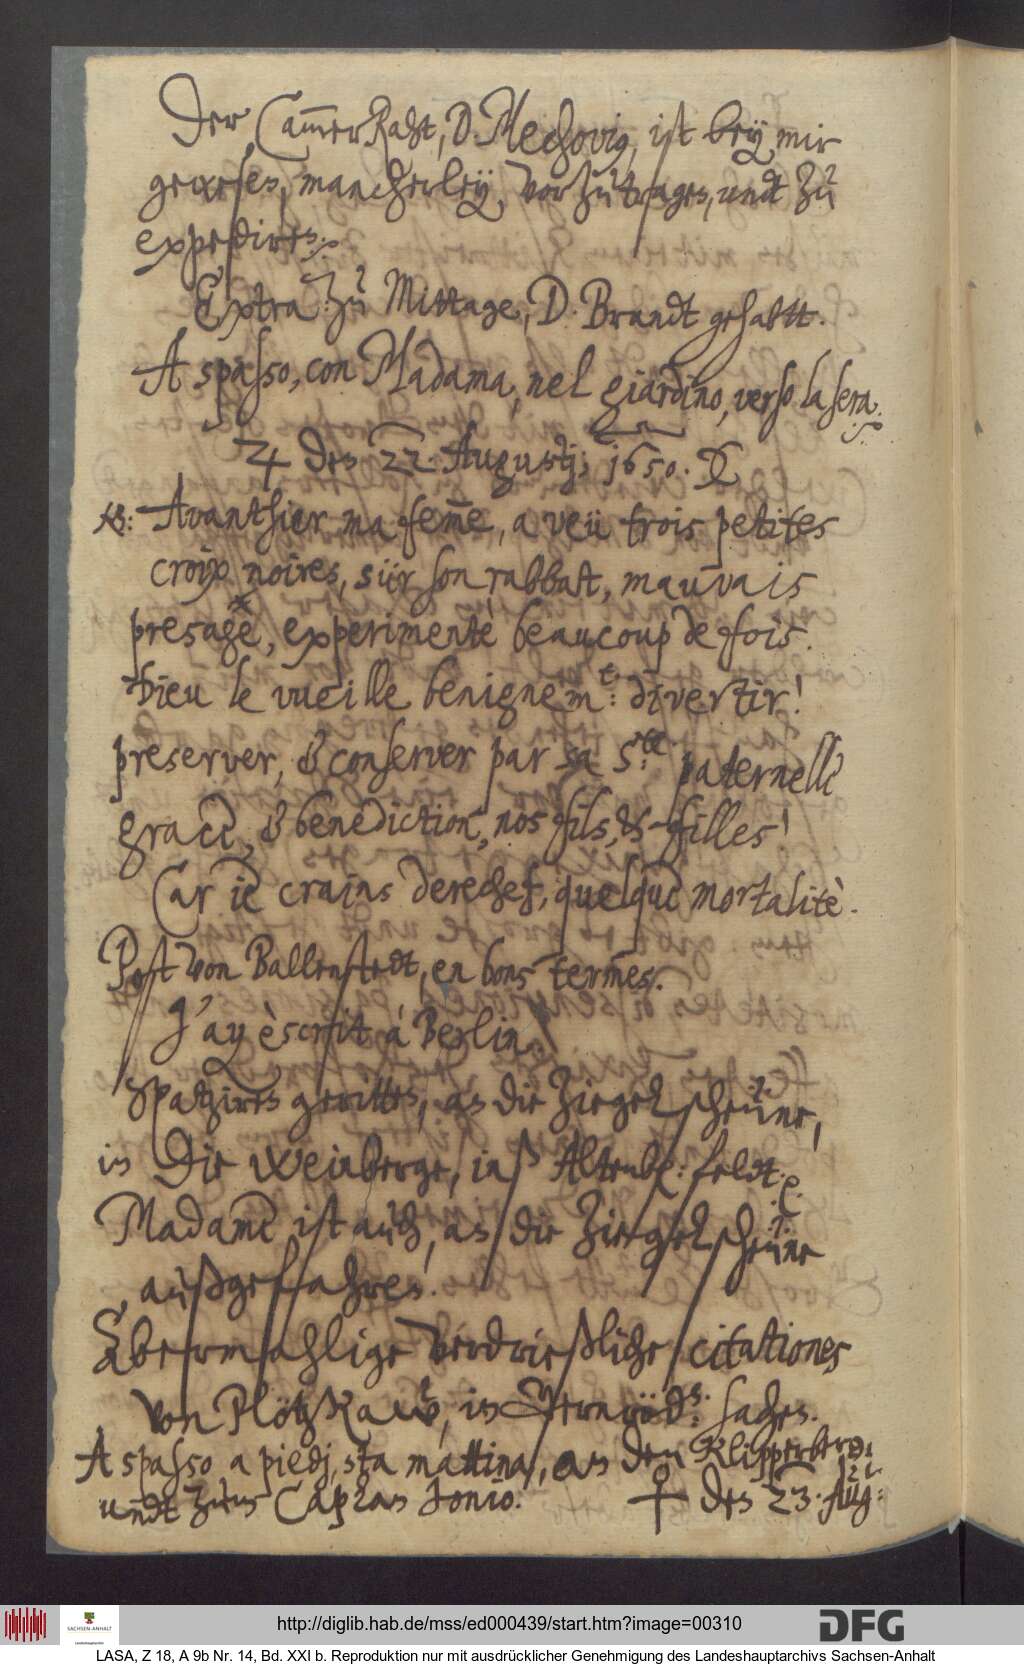 Der Cammer Raht, D. Mechovig, ist bey mir
gewesen, mancherley, vorzutragen, undt zu
expediren.
Extra zu Mittage, D. Brandt gehabtt.
A spasso, con Madama, nel giardino, verso la sera.
♃ den 22. Augustj; 1650.
NB: Avanthier ma femme, a veü trois petites
croix noires, sür son rabbat, mauvais
presage, experimentè beaucoup de fois.
Dieu le vueille benignem.t: divertir!
preserver, & conserver par sa S.te paternelle
grace, & benediction, nos fils, & filles!
Car ie crains derechef, quelque mortalitè.
Post von Ballenstedt, en bons termes.
J'ay èscrit á Berlin.
Spatziren geritten, an die Ziegelscheüne,
in die Weinberge, inß Altenb: feldt
Madame ist auch, an die Ziegelscheüne
außgefahren.
Abermahlige verdrießliche citationes
von Plötzkaw, in sachen.
A spasso a piedj, sta mattina, an den Klipperberg,
undt zum Capitan Tonio.
♀ den 23. Aug:
http://diglib.hab.de/mss/ed000439/start.htm?image=00310
DFG
SACHSEN-ANHALT
Landeshauptarchiv
LASA, Z 18, A 9b Nr. 14, Bd. XXI b. Reproduktion nur mit ausdrücklicher Genehmigung des Landeshauptarchivs Sachsen-Anhalt